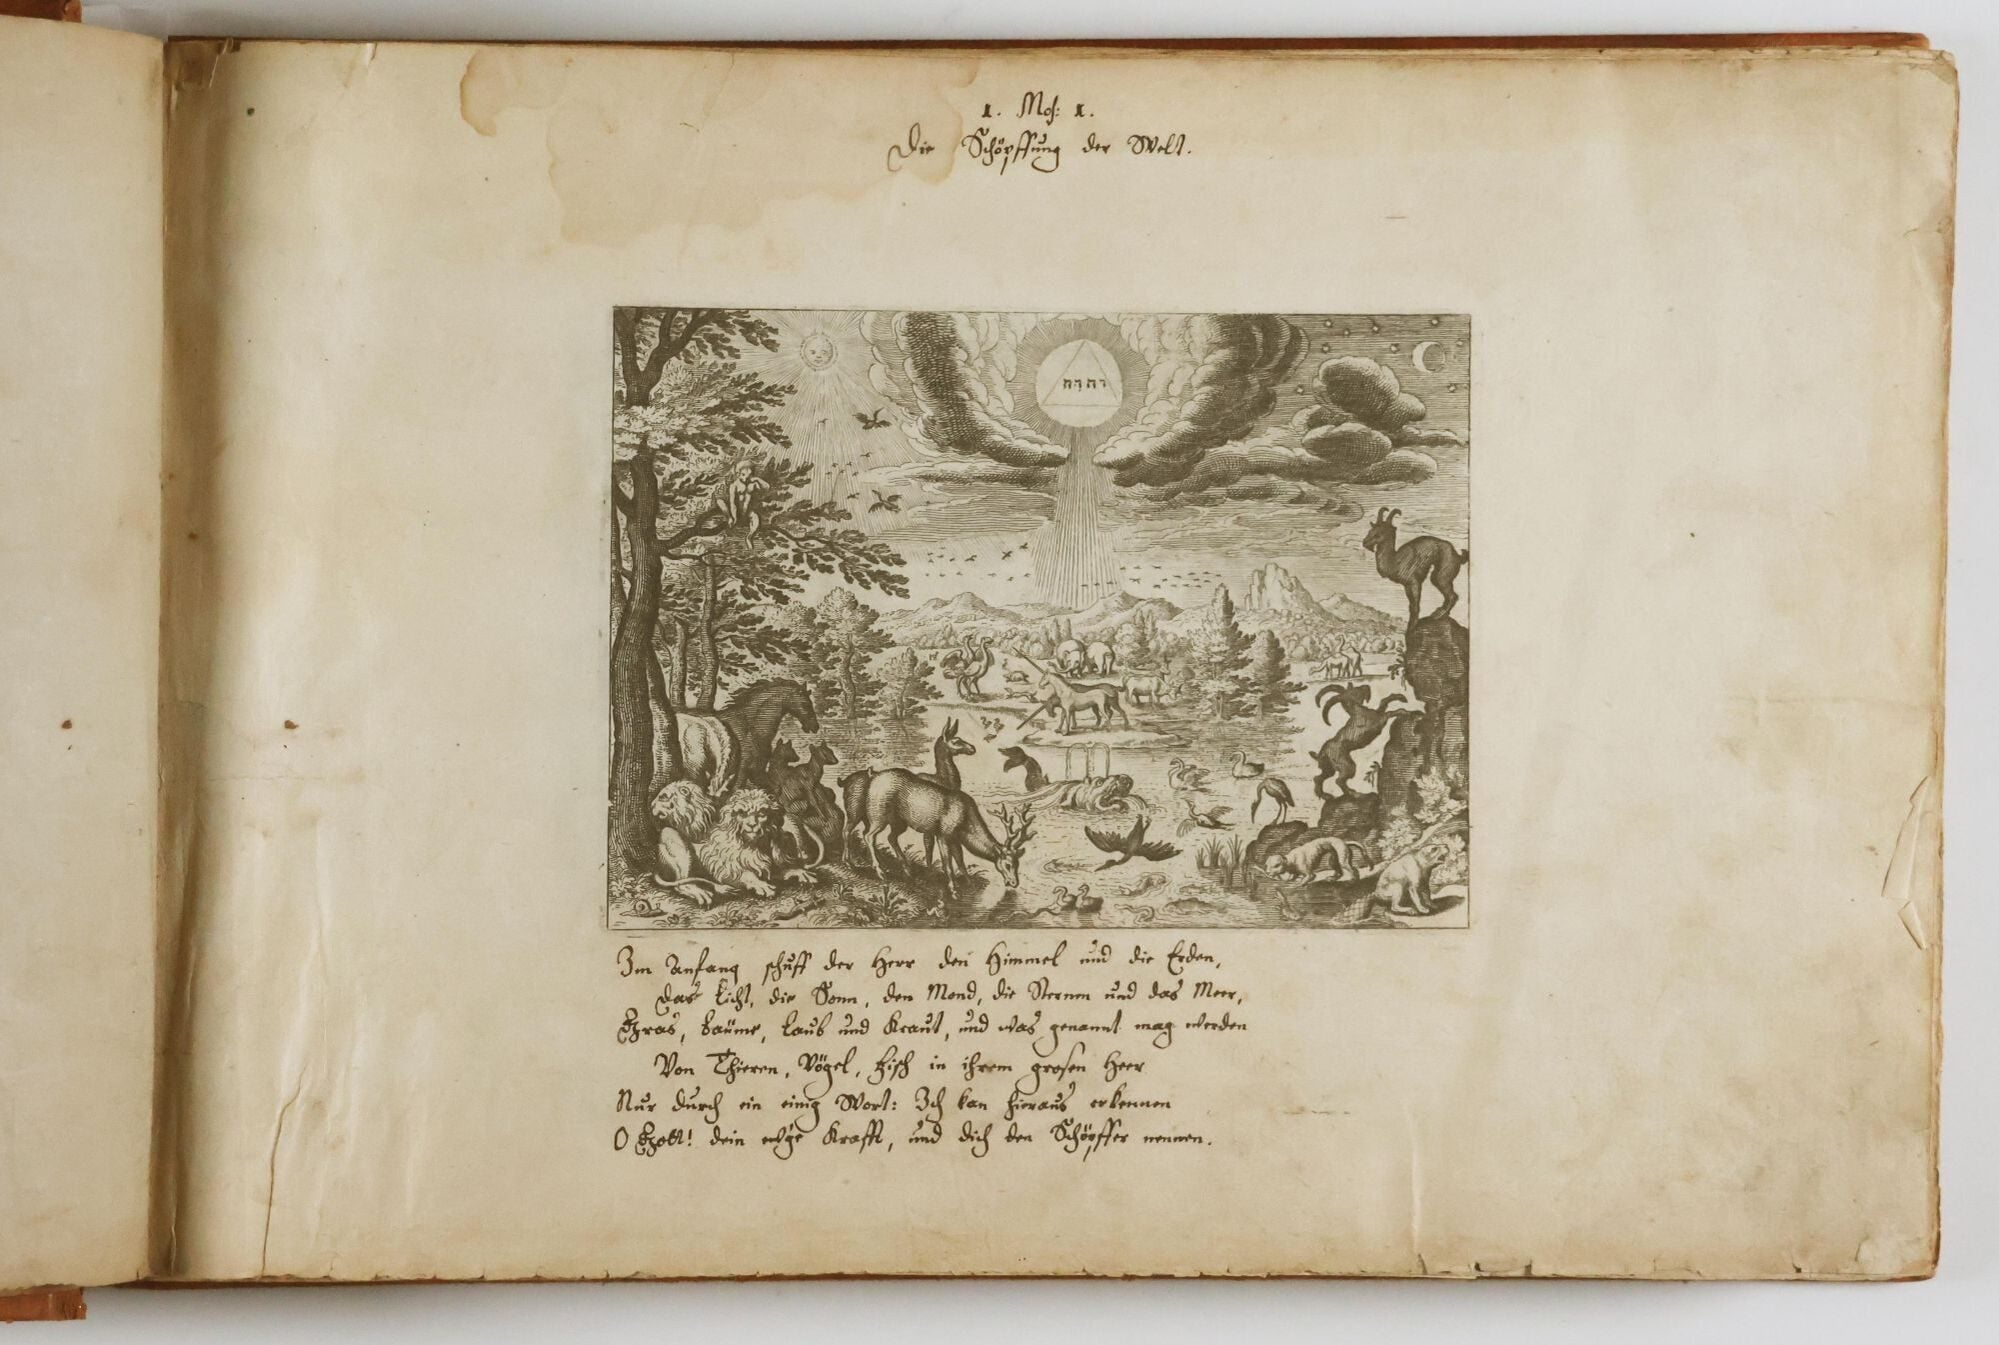 1. Mos: 1.
Die Schöpffung der Welt.
יהוה
Im Anfang schuff der Herr den Himmel und die Erden,
Das Licht, die Sonn, den Mond, die Sternen und das Meer,
Graß, Bäume, Laub und Kraut, und was genannt mag werden
Von Thieren, Vögel, Fisch in ihrem grosen Heer
Nur durch ein einig Wort: Ich kan hieraus erkennen
O Gott! dein ewge Krafft, und dich den Schöpffer nennen.